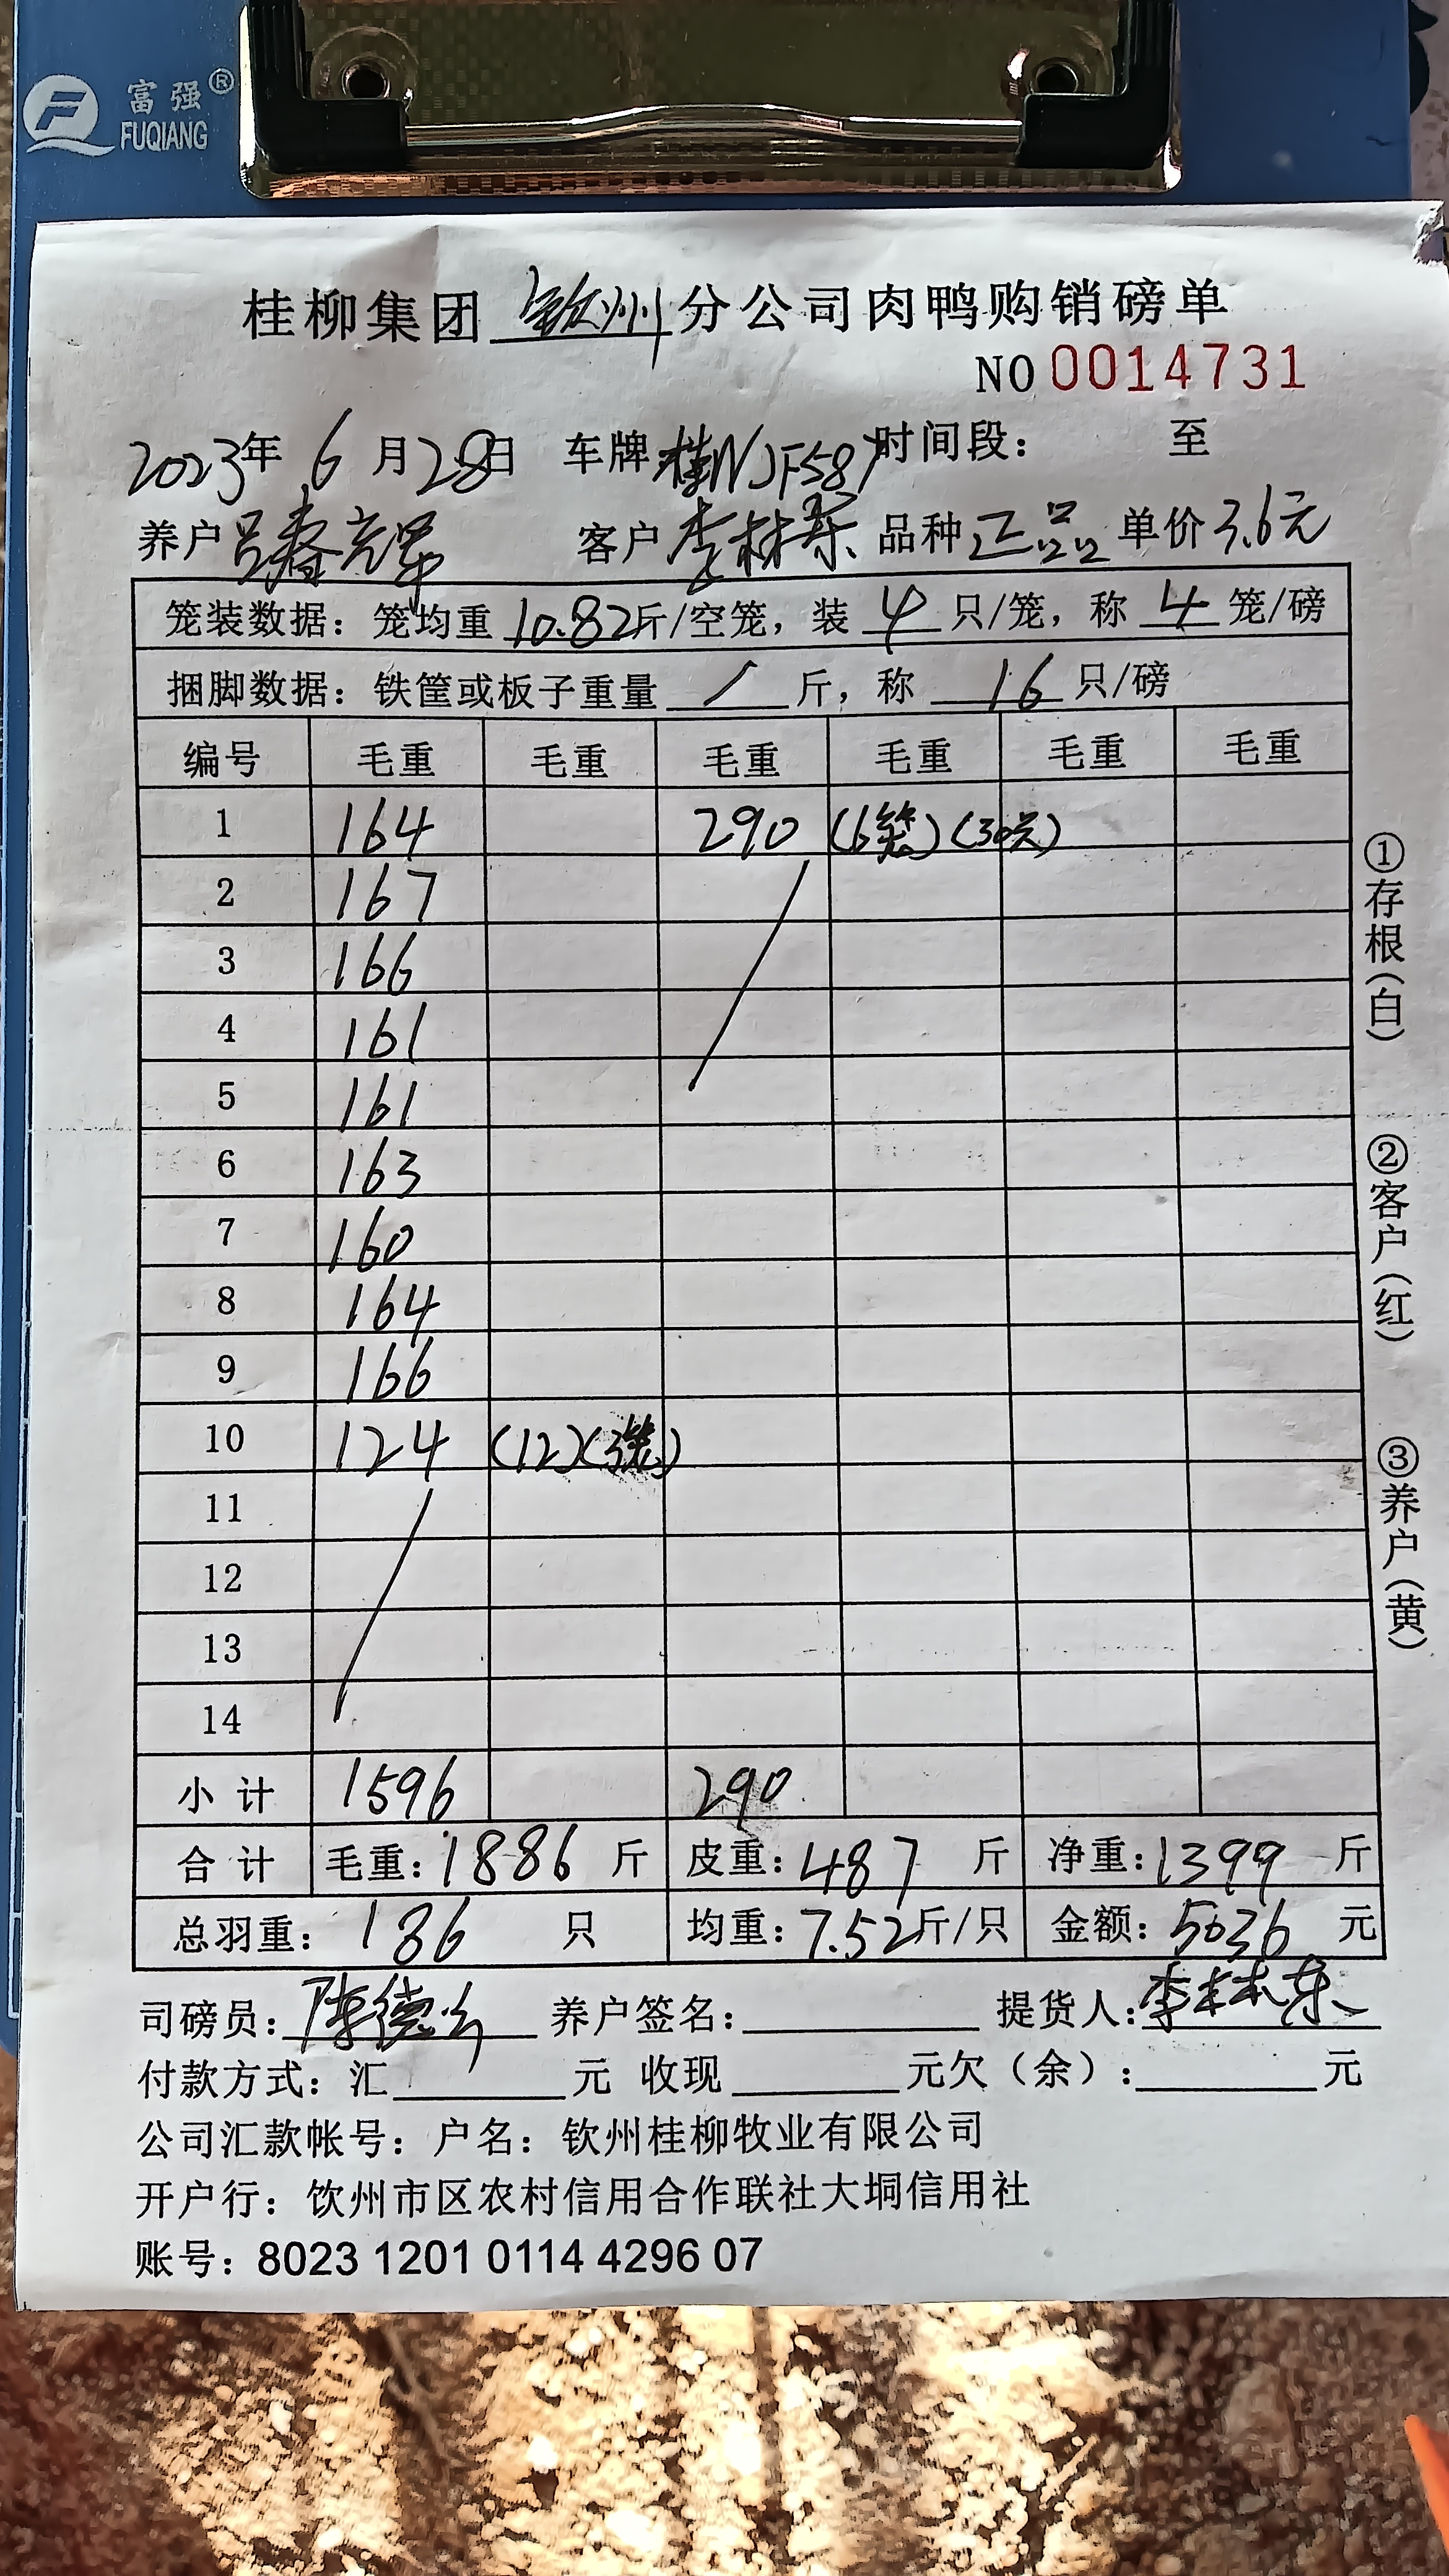 富强®
FUQIANG
桂柳集团 钦州 分公司肉鸭购销磅单
NO 0014731
2023年 6 月 28日 车牌:桂NJF587 时间段: 至
养户 吕春光 客户 李林东 品种 正品 单价 3.6元
笼装数据: 笼均重 10.82斤/空笼, 装 4 只/笼, 称 4 笼/磅
捆脚数据: 铁筐或板子重量 / 斤, 称 16 只/磅
编号 毛重 毛重 毛重 毛重 毛重 毛重
1 164 290 (6笼) (30只)
2 167
3 166
4 161
5 161
6 163
7 160
8 164
9 166
10 124 (12) (3笼)
11
12
13
14
小 计 1596 290
合 计 毛重: 1886 斤 皮重: 487 斤 净重: 1399 斤
总羽重: 186 只 均重: 7.52斤/只 金额: 5036 元
司磅员: 陈德 养户签名: 提货人: 李林东
付款方式: 汇 元 收现 元欠(余): 元
公司汇款帐号: 户名: 钦州桂柳牧业有限公司
开户行: 饮州市区农村信用合作联社大垌信用社
账号: 8023 1201 0114 4296 07
①存根(白)
②客户(红)
③养户(黄)